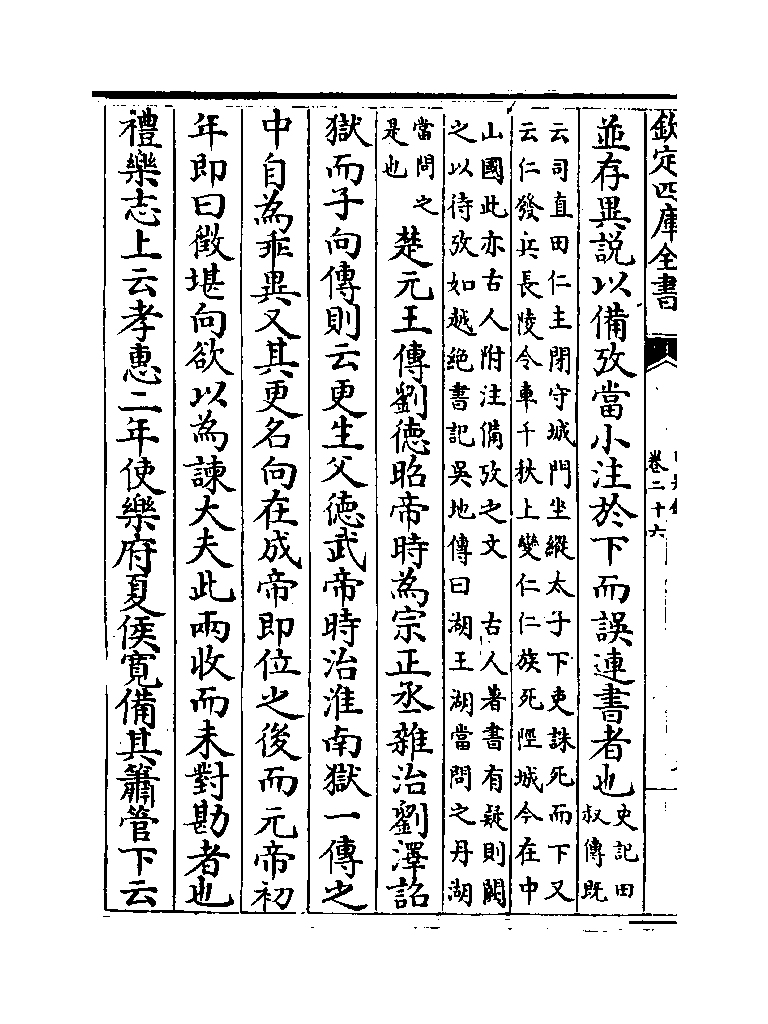 欽定四庫全書
卷二十六
並存異説以備攷當小注於下而誤連書者也史記田
叔傳既
云司直田仁主閉守城門坐縱太子下吏誅死而下又
云仁發兵長陵令車千秋上變仁仁族死陘城今在中
山國此亦古人附注備攷之文　古人著書有疑則闕
之以待攷如越絶書記吳地傳曰湖王湖當問之丹湖
當問之
是也　楚元王傳劉德昭帝時為宗正丞雜治劉澤詔
獄而子向傳則云更生父德武帝時治淮南獄一傳之
中自為乖異又其更名向在成帝即位之後而元帝初
年即曰徵堪向欲以為諫大夫此兩收而未對勘者也
禮樂志上云孝惠二年使樂府夏侯寛備其簫管下云